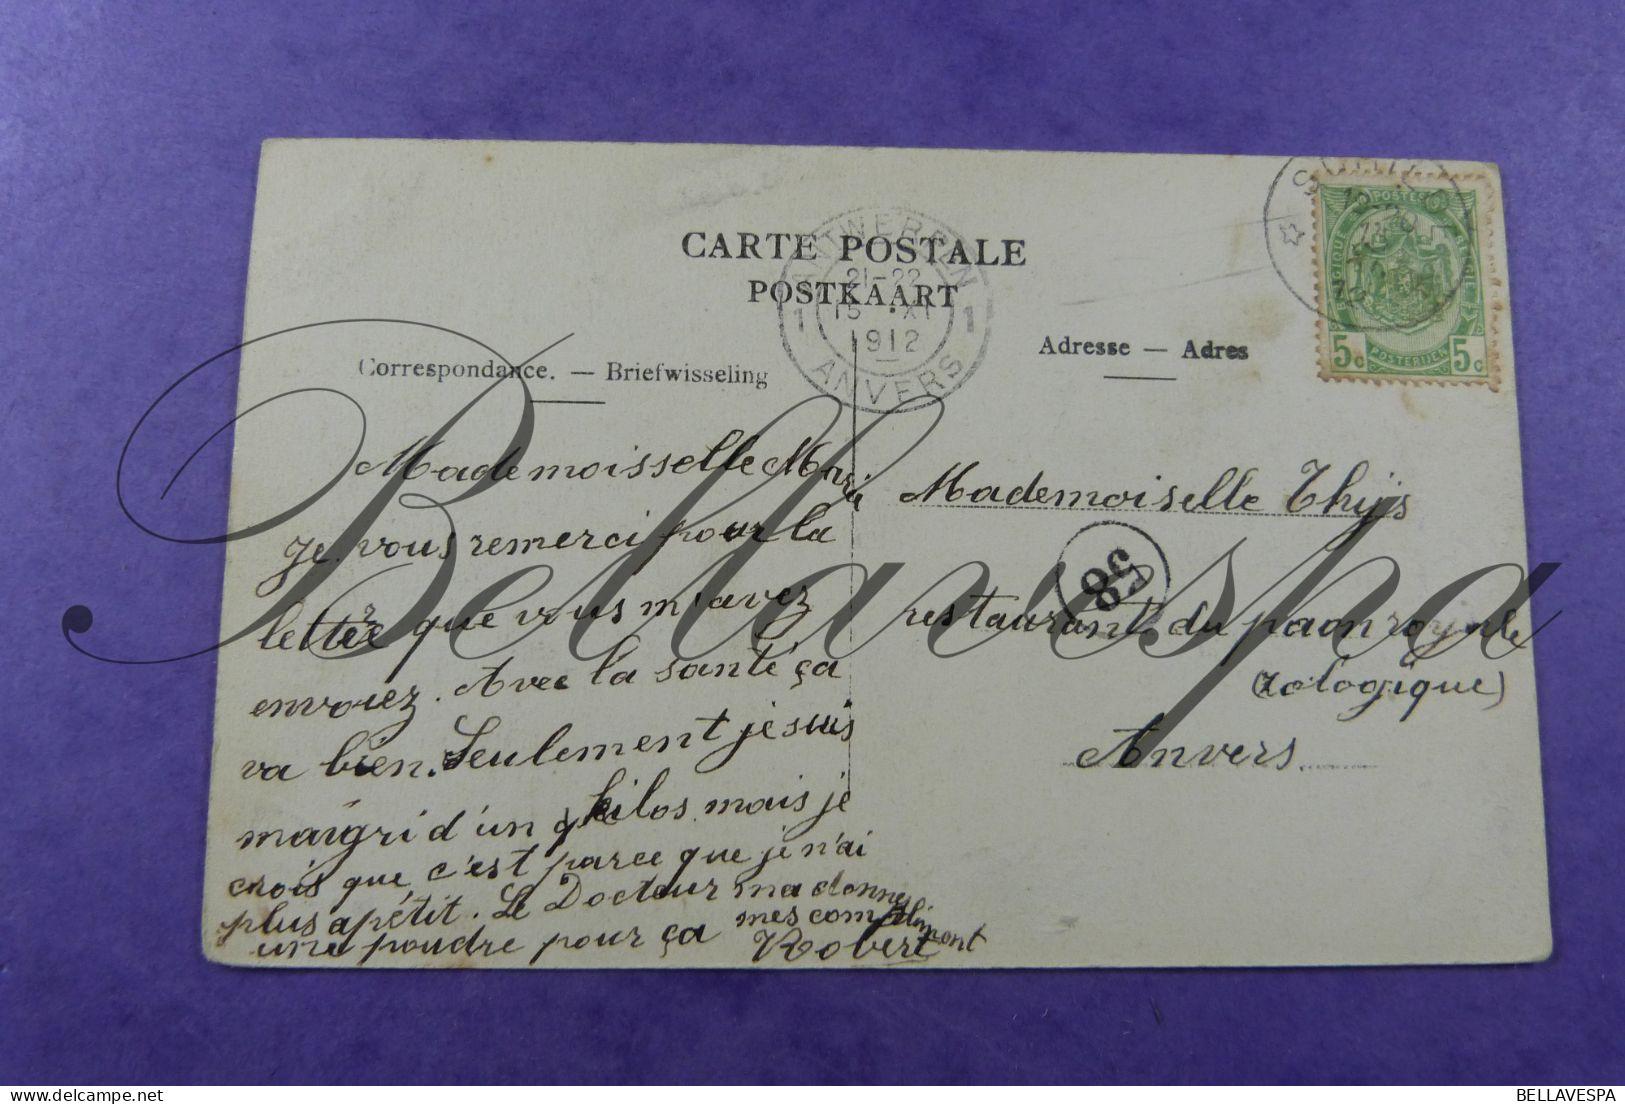 CARTE POSTALE
POSTKAART
ANTWERPEN
21-22
15 XI
1912
1 1
ANVERS
Correspondance. — Briefwisseling
Adresse — Adres
POSTES
BELGIQUE BELGIE
5c POSTERIJEN 5c
Mademoisselle Marie
Je vous remerci pour la
lettre que vous m'avez
envoiez. Avec la santé ça
va bien. Seulement je suis
maigri d'un kilos mais je
crois que c'est parce que je n'ai
plus apétit. Le Docteur ma donne
une poudre pour ça mes compliment
Robert
Mademoiselle Thijs
58
restaurant du paon royale
(zologique)
Anvers
Bellavespa
BELLAVESPA